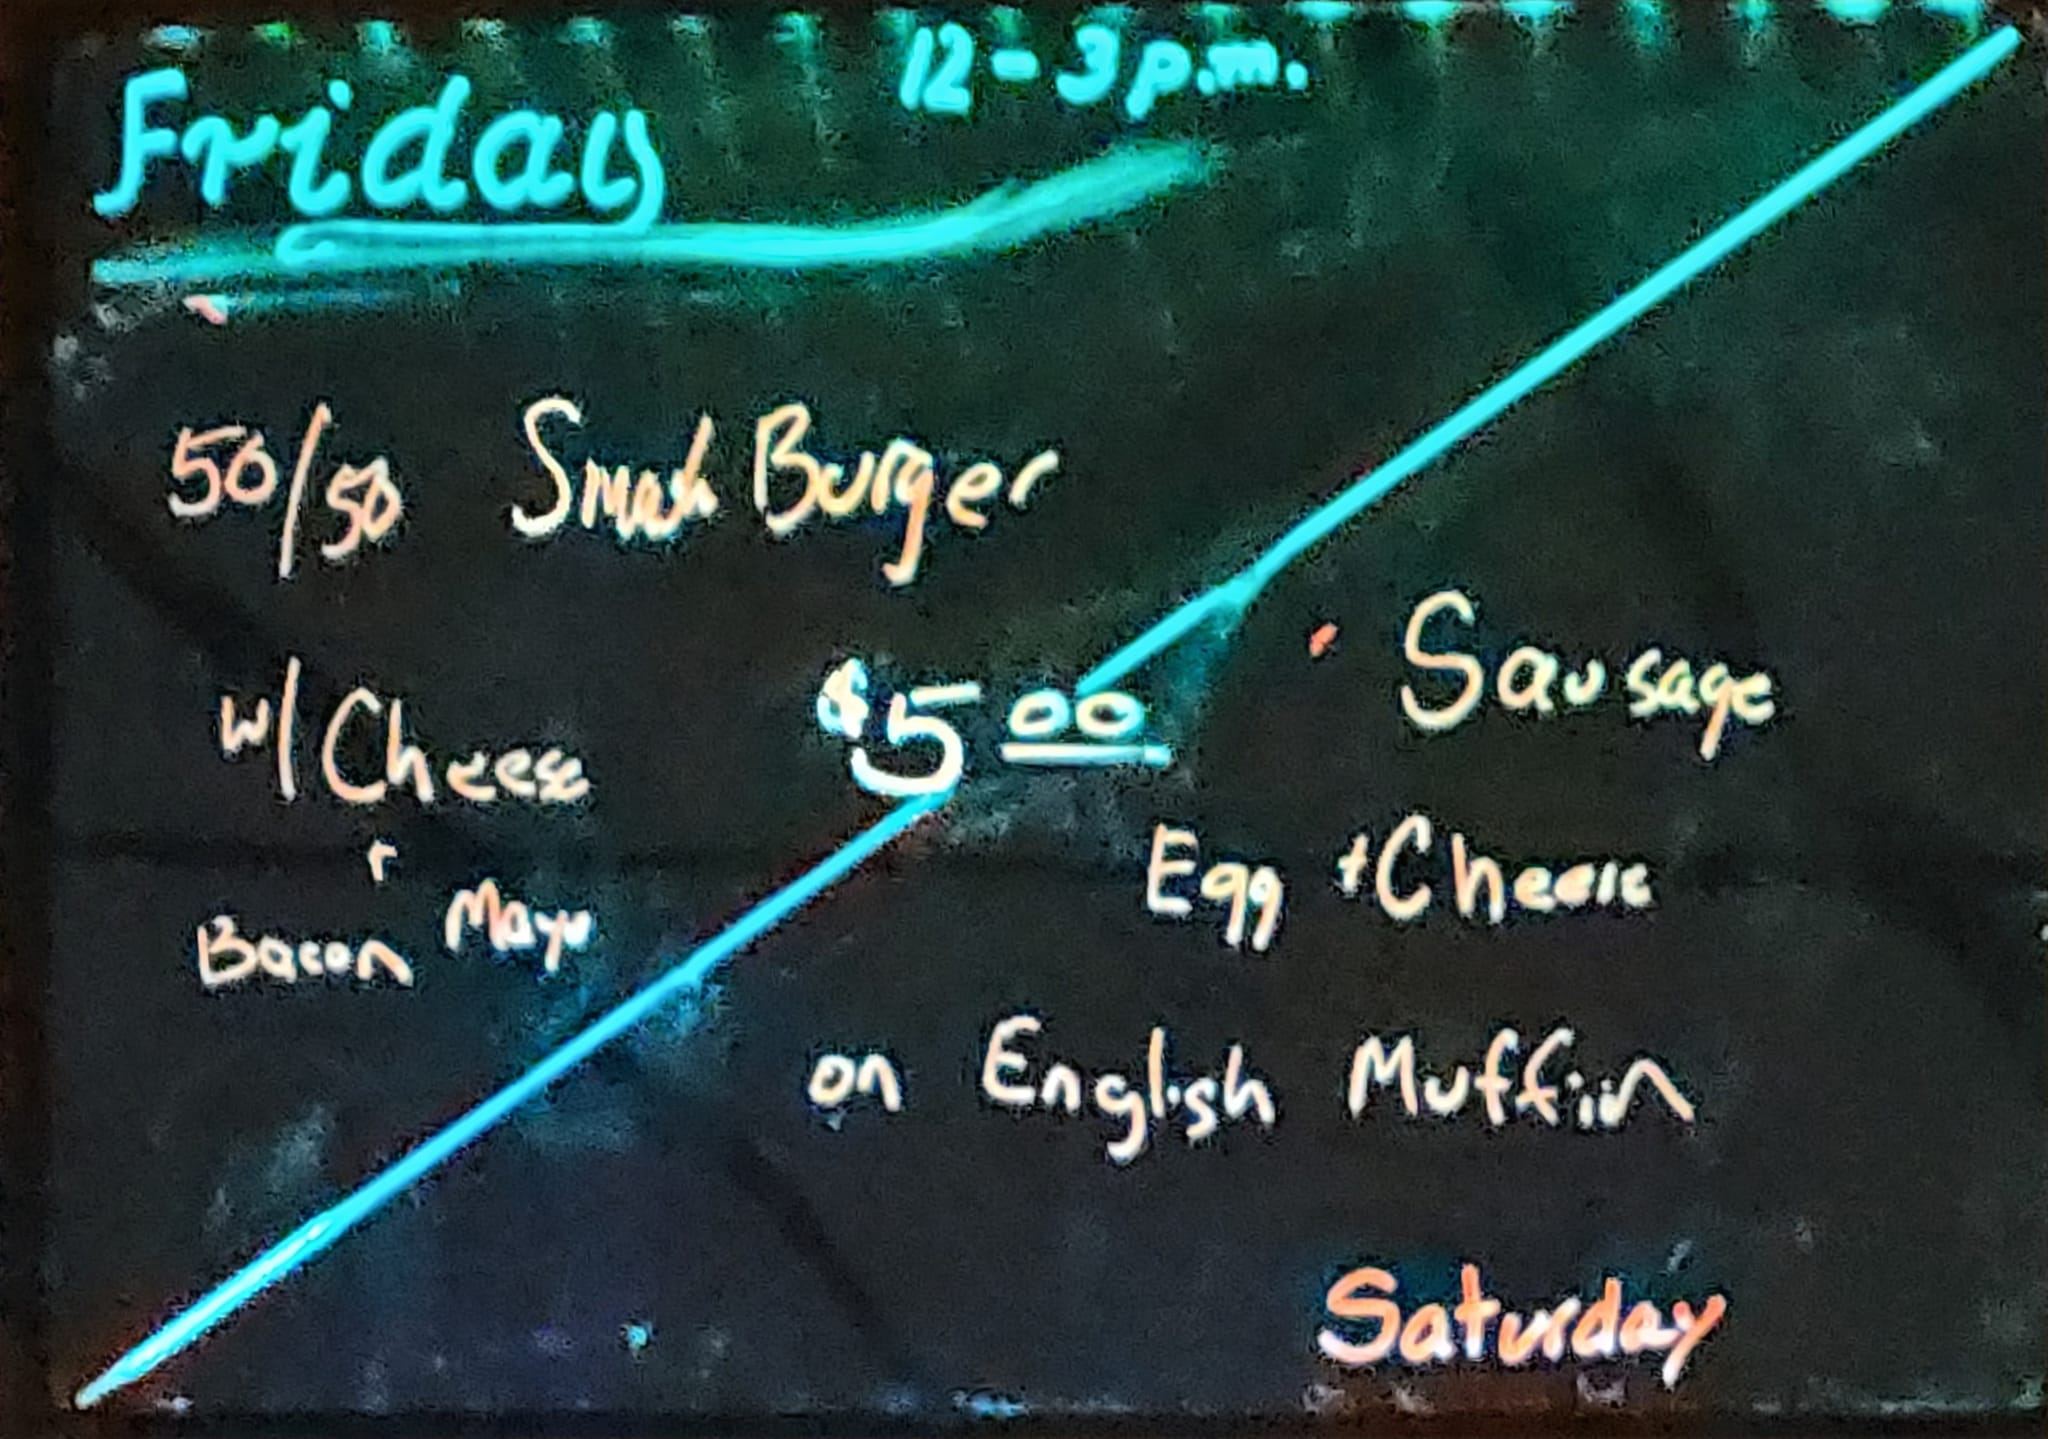 Friday 12-3p.m.
50/50 Smash Burger
w/ Cheese
+
Bacon Mayo
$5.00
Sausage
Egg + Cheese
on English Muffin
Saturday